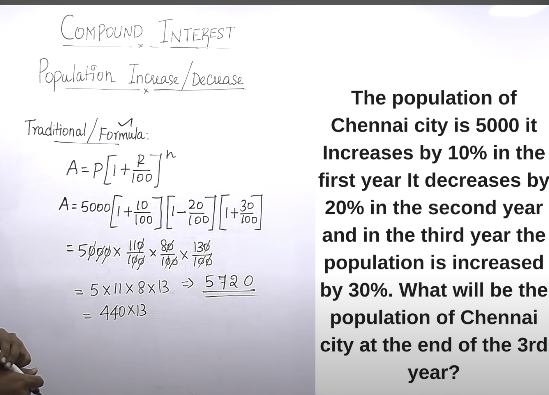 COMPOUND INTEREST
Population Increase/Decrease
Traditional/Formula:
A = P[1 + R/100]^n
A = 5000[1 + 10/100][1 - 20/100][1 + 30/100]
= 5000 x 110/100 x 80/100 x 130/100
= 5 x 11 x 8 x 13 ⇒ 5720
= 440 x 13
The population of
Chennai city is 5000 it
Increases by 10% in the
first year It decreases by
20% in the second year
and in the third year the
population is increased
by 30%. What will be the
population of Chennai
city at the end of the 3rd
year?